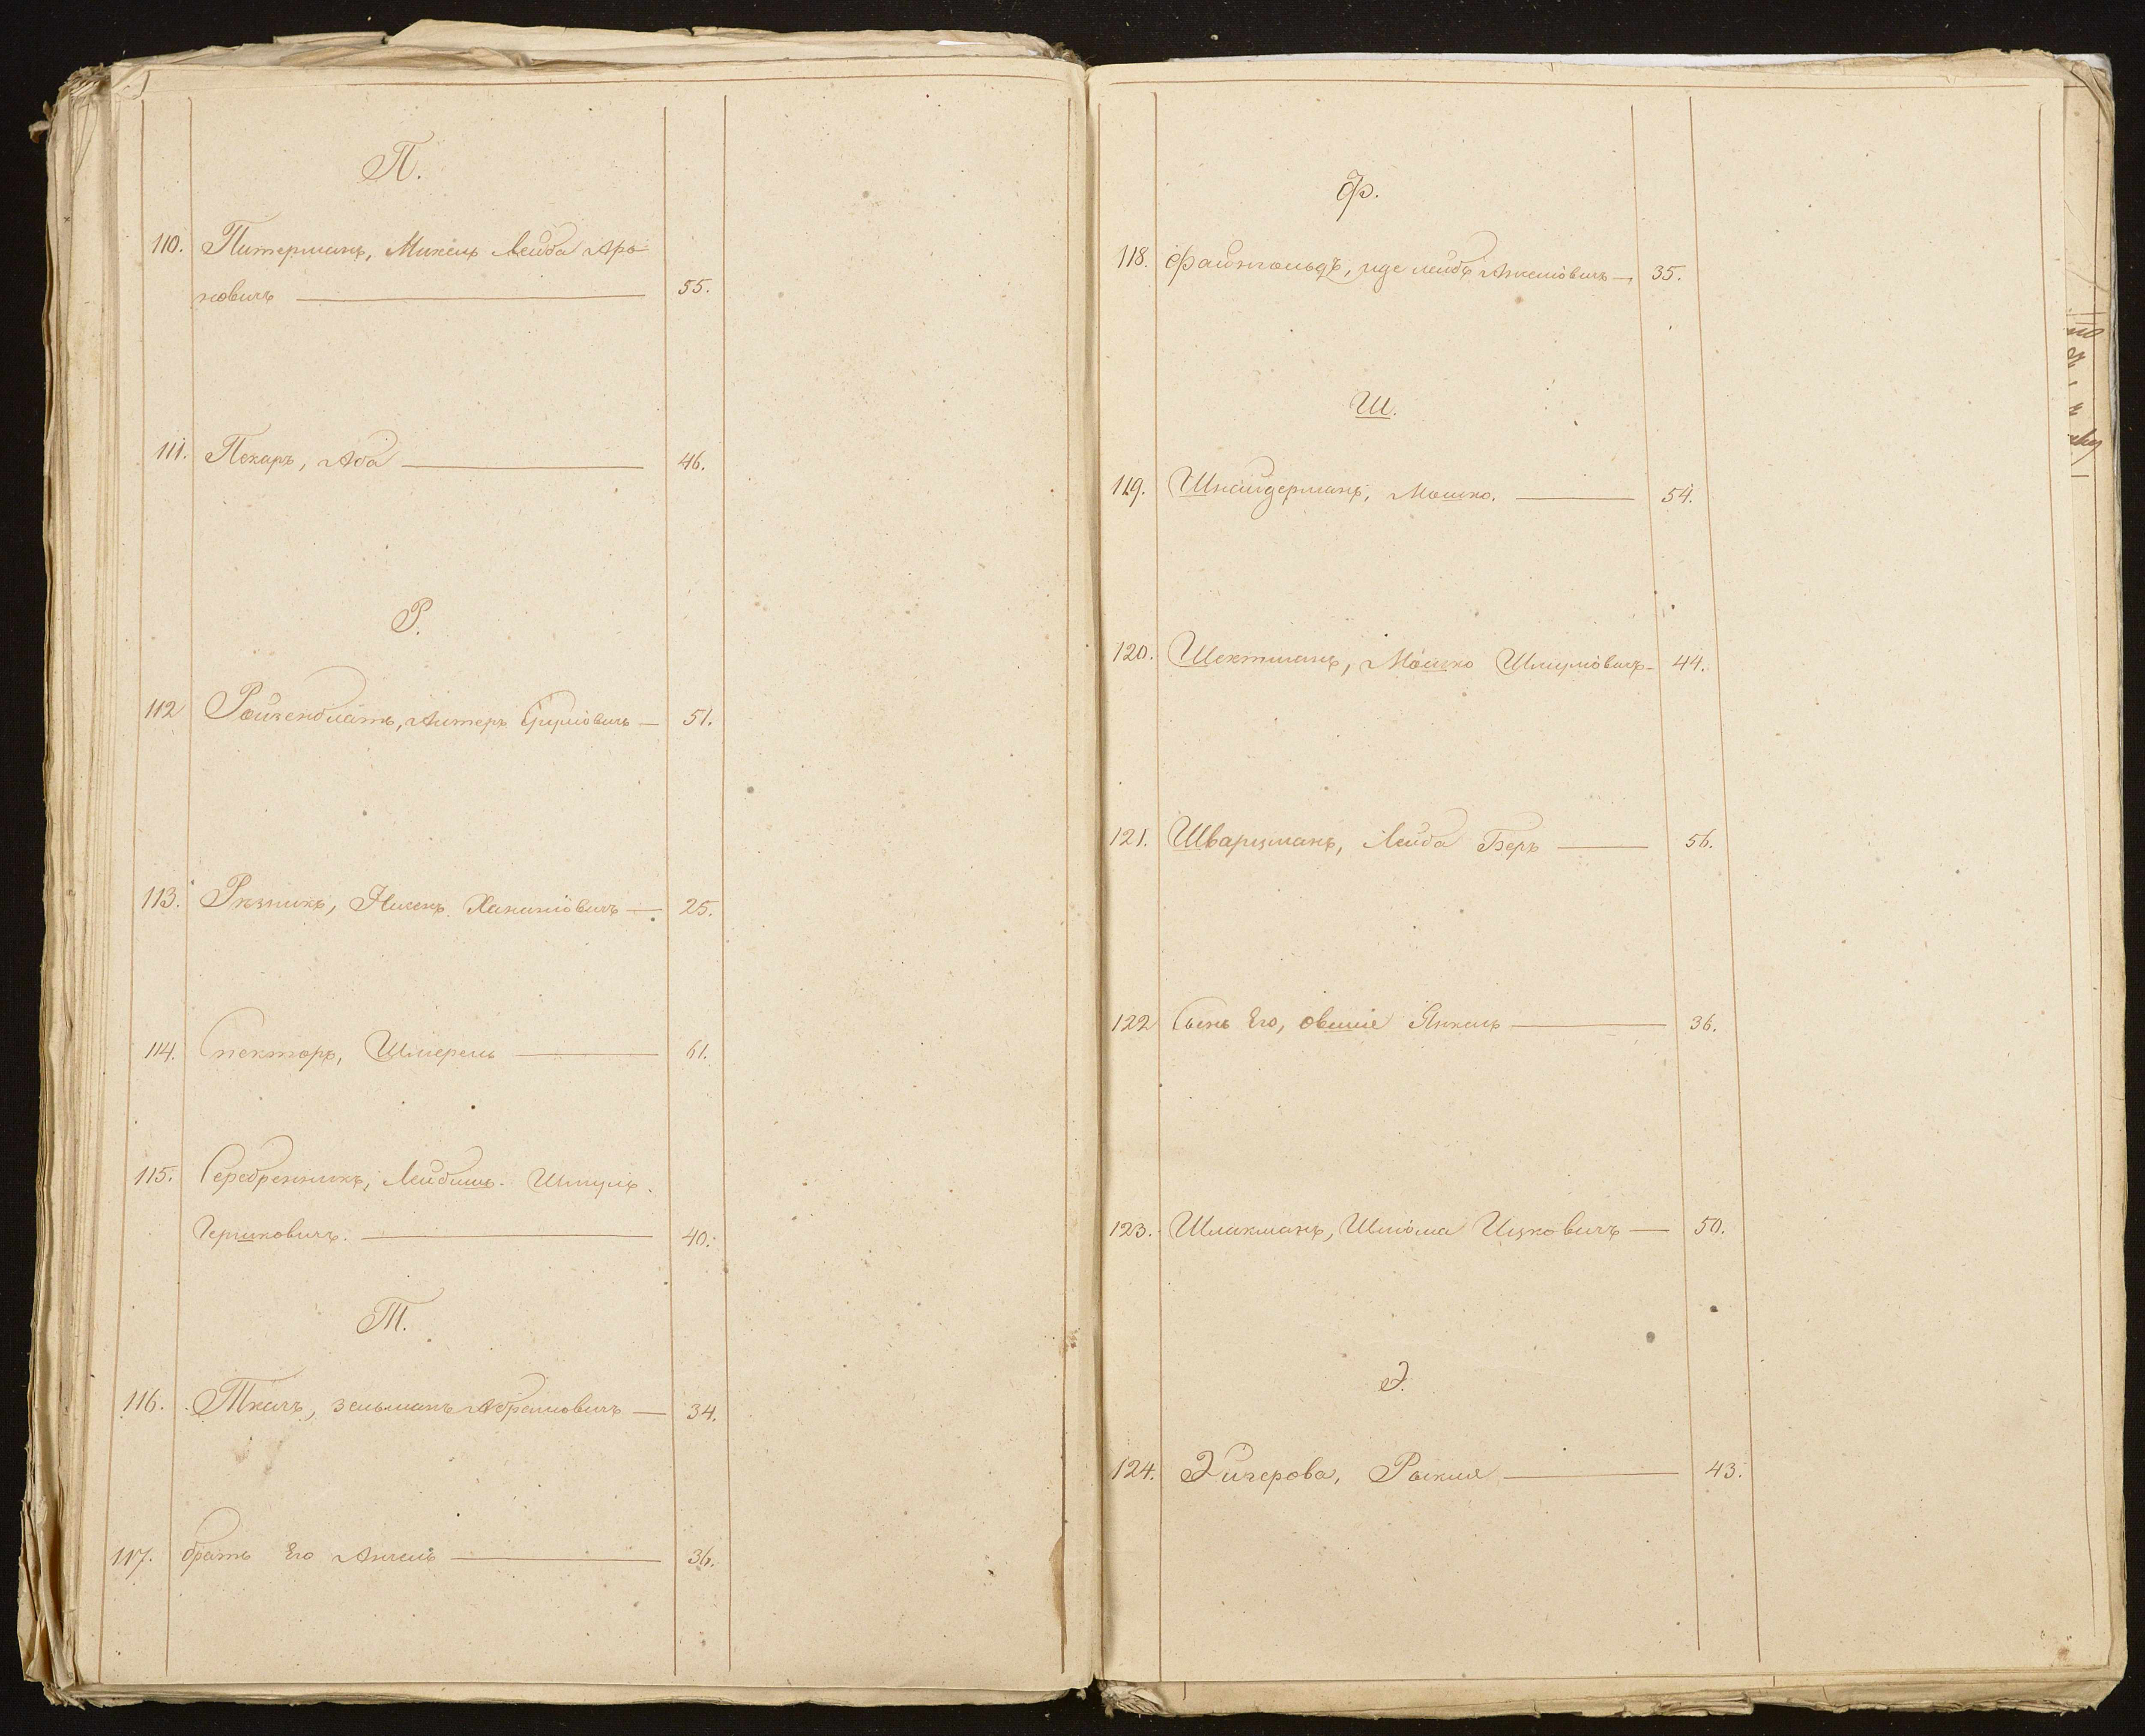 П.
110. Питерманъ, Михель Лейба Аро-
новичъ 55.
111. Пекаръ, Аба 46.
Р.
112 Ройзенблатъ, Алтеръ Сруліовичъ 51.
113. Рѣзникъ, Нисенъ Хаиміовичъ 25.
114. Спекторъ, Шмерель 61.
115. Серебренникъ, Лейбишъ Шмуль
Гершковичъ. 40.
Т.
116. Ткачъ, Зельманъ Абрамовичъ 34.
117. братъ Его Анчель 36.
Ф.
118. Файнгольдъ, Иде Лейбъ 35.
Ш.
119. Шнайдерманъ, Мошко. 54.
120. Шехтманъ, Мошко Шмуліовичъ 44.
121. Шварцманъ, Лейба Беръ 56.
122 Сынъ Его, Овшіе Янкель 36.
123. Шлакманъ, Шліома Ицковичъ 50.
Э.
124. Рыкля 43.